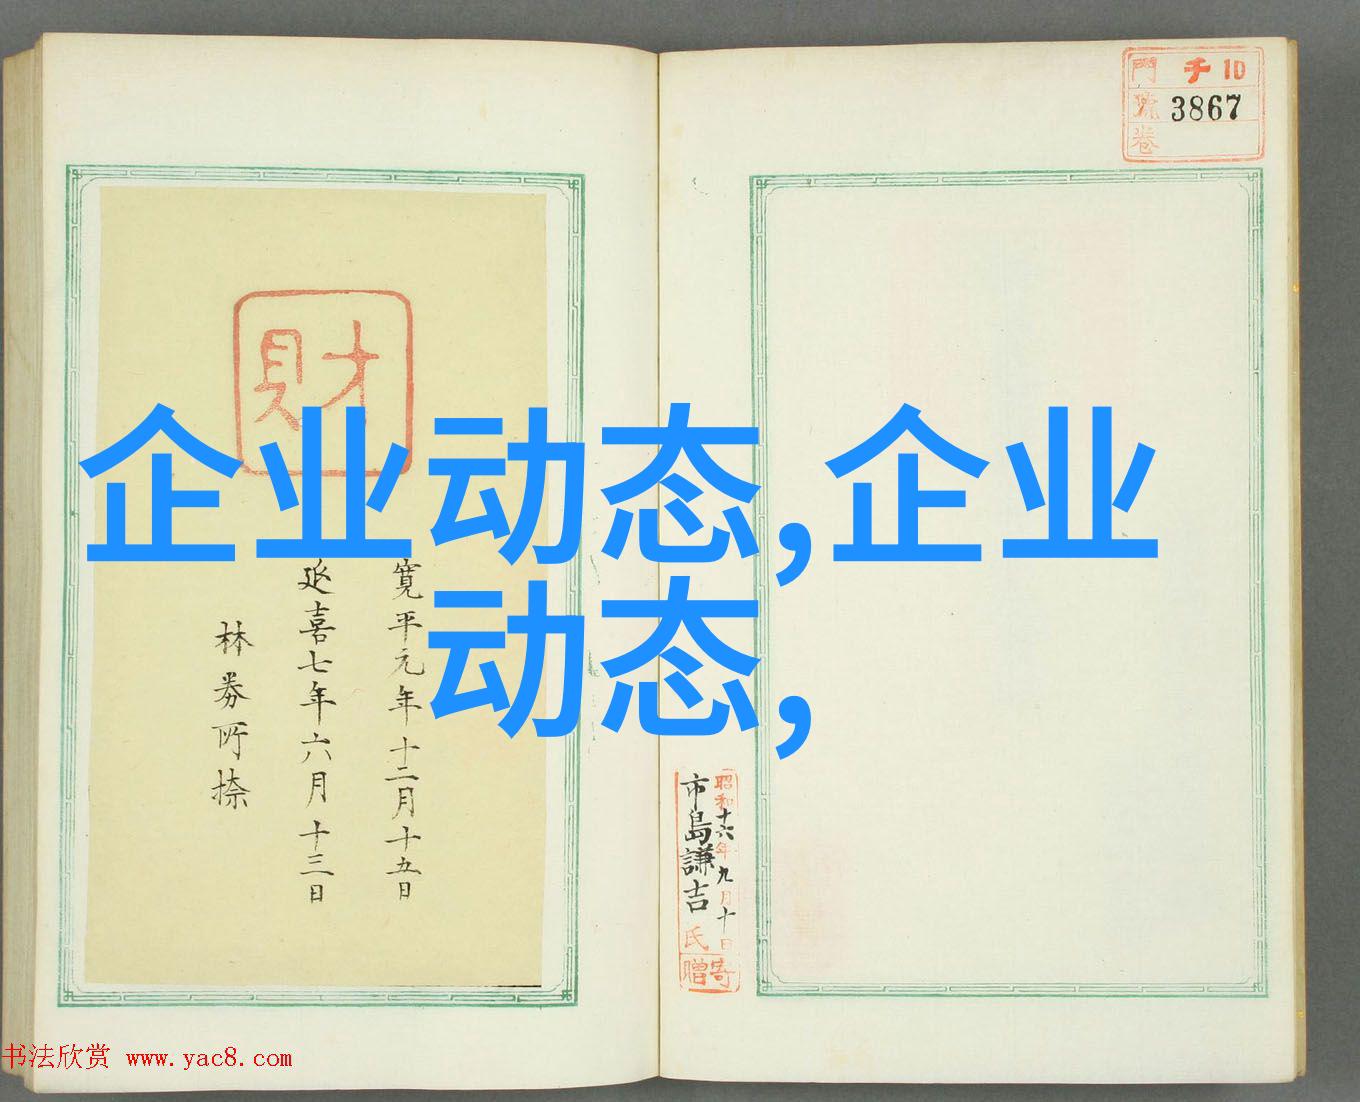 門 チ 10
號 3867
卷
財
企业动态,企业
动态,
寛平元年十二月十五日
延喜七年六月十三日
林券所捺
昭和十六年九月十日
市島謙吉氏寄贈
书法欣赏 www.yac8.com